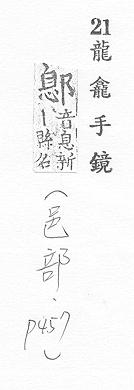 21 龍龕手鏡
鄎 音息新丨縣名
(邑部.p457)